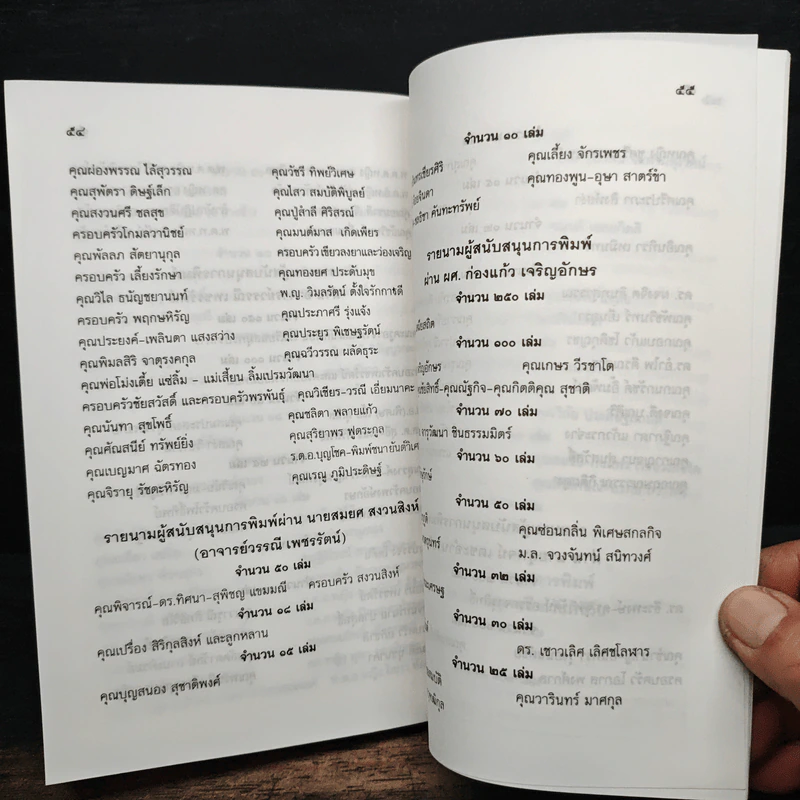 ๕๔
คุณผ่องพรรณ ไล้สุวรรณ คุณวัชรี ทิพย์วิเศษ
คุณสุพัตรา ดิษฐ์เล็ก คุณไสว สมบัติพิบูลย์
คุณสงวนศรี ชลสุข คุณปู่สำลี ศิริสรณ์
ครอบครัวโกมลวานิชย์ คุณมนต์มาส เกิดเพียร
คุณพัลลภ สัตยานุกุล ครอบครัวเขียวลงยาและว่องเจริญ
ครอบครัว เลี้ยงรักษา คุณทองยศ ประดับมุข
คุณวิไล ธนัญชยานนท์ พ.ญ. วิมลรัตน์ ตั้งใจรักกาชดี
ครอบครัว พฤกษหิรัญ คุณประภาศรี รุ่งแจ้ง
คุณประยงค์-เพลินดา แสงสว่าง คุณประยูร พิเชษฐรัตน์
คุณพิมลสิริ จาตุรงคกุล คุณฉวีวรรณ ผลัดธุระ
คุณพ่อโม่งเตี้ย แซ่ลิ้ม - แม่เสี้ยน ลิ้มเปรมวัฒนา
ครอบครัวชัยสวัสดิ์ และครอบครัวพรพันธุ์ คุณวิเชียร-วรณี เอี่ยมนาคะ
คุณนันทา สุขโพธิ์ คุณชลิตา พลายแก้ว
คุณศัณสนีย์ ทรัพย์ยิ่ง คุณสุริยาพร ฟูตระกูล
คุณเบญมาศ ฉัตรทอง ร.ต.อ.บุญโชค-พิมพ์ชนา
คุณจิรายุ รัชตะหิรัญ คุณเรณู ภูมิประดิษฐ์
รายนามผู้สนับสนุนการพิมพ์ผ่าน นายสมยศ สงวนสิงห์
(อาจารย์วรรณี เพชรรัตน์)
จำนวน ๕๐ เล่ม
คุณพิจารณ์-ดร.ทิศนา-สุพิชญ แขมมณี ครอบครัว สงวนสิงห์
จำนวน ๑๘ เล่ม
คุณเปรื่อง สิริกุลสิงห์ และลูกหลาน
จำนวน ๑๕ เล่ม
คุณบุญสนอง สุชาติพงศ์
๕๕
จำนวน ๑๐ เล่ม
คุณเลี้ยง จักรเพชร
คุณทองพูน-อุษา สาตร์ขำ
คันทะทรัพย์
รายนามผู้สนับสนุนการพิมพ์
ผ่าน ผศ. ก่องแก้ว เจริญอักษร
จำนวน ๒๕๐ เล่ม
จำนวน ๑๐๐ เล่ม
คุณเกษร วีรชาโด
-คุณณัฐกิจ-คุณกิตติคุณ สุชาติ
จำนวน ๗๐ เล่ม
ชินธรรมมิตร์
จำนวน ๖๐ เล่ม
จำนวน ๕๐ เล่ม
คุณซ่อนกลิ่น พิเศษสกลกิจ
ม.ล. จวงจันทน์ สนิทวงศ์
จำนวน ๓๒ เล่ม
จำนวน ๓๐ เล่ม
ดร. เชาวเลิศ เลิศชโลฬาร
จำนวน ๒๕ เล่ม
คุณวารินทร์ มาศกุล